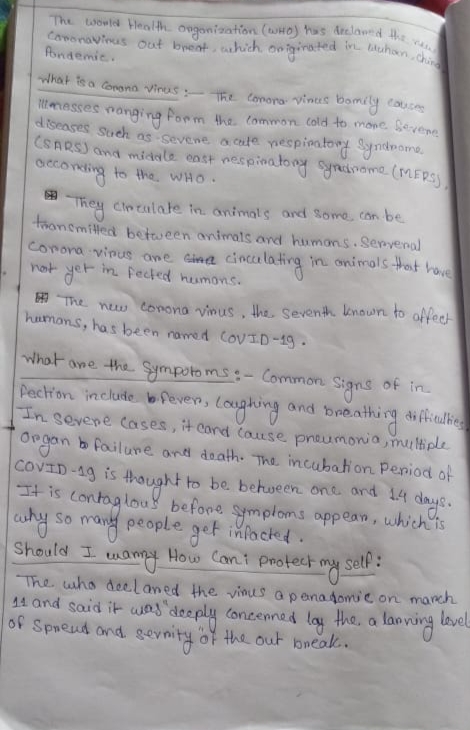 The World Health Onganization (WHO) has declaned the new
Coronavinus out bneat, which oniginated in Wuhan, china
Pandemic.
What is a Conona vinus :— The conona vinus bamily causes
illnesses nanging form the common cold to mone Sevene
diseases such as sevene acute nespinatony Syndnome
(SARS) and middle east nespinatony Syndnome (MERS),
according to the WHO.
They cinculate in animals and some can be
tnansmitted between animals and humans. Sernenal
conona vinus ane cinculating in animals that have
not yet in fected humans.
The new conona vinus, the seventh known to affect
humans, has been named COVID-19.
What ane the Sympotoms :- Common Signs of in
fection include feven, Coughing and bneathing difficulties.
In Sevene cases, it cand cause pneumonia, multiple
Ongan failune and death. The incubation Peniod of
COVID-19 is thought to be between one and 14 days.
It is contaglous befone symptoms appean, which is
why so many people get infacted.
Should I wanny How Can i pnotect my self :
The who declaned the vinus a penadomic on manch
11 and said it was "deeply concenned lay the, a lanning level
of Spneud and sevnity of the out bneak.